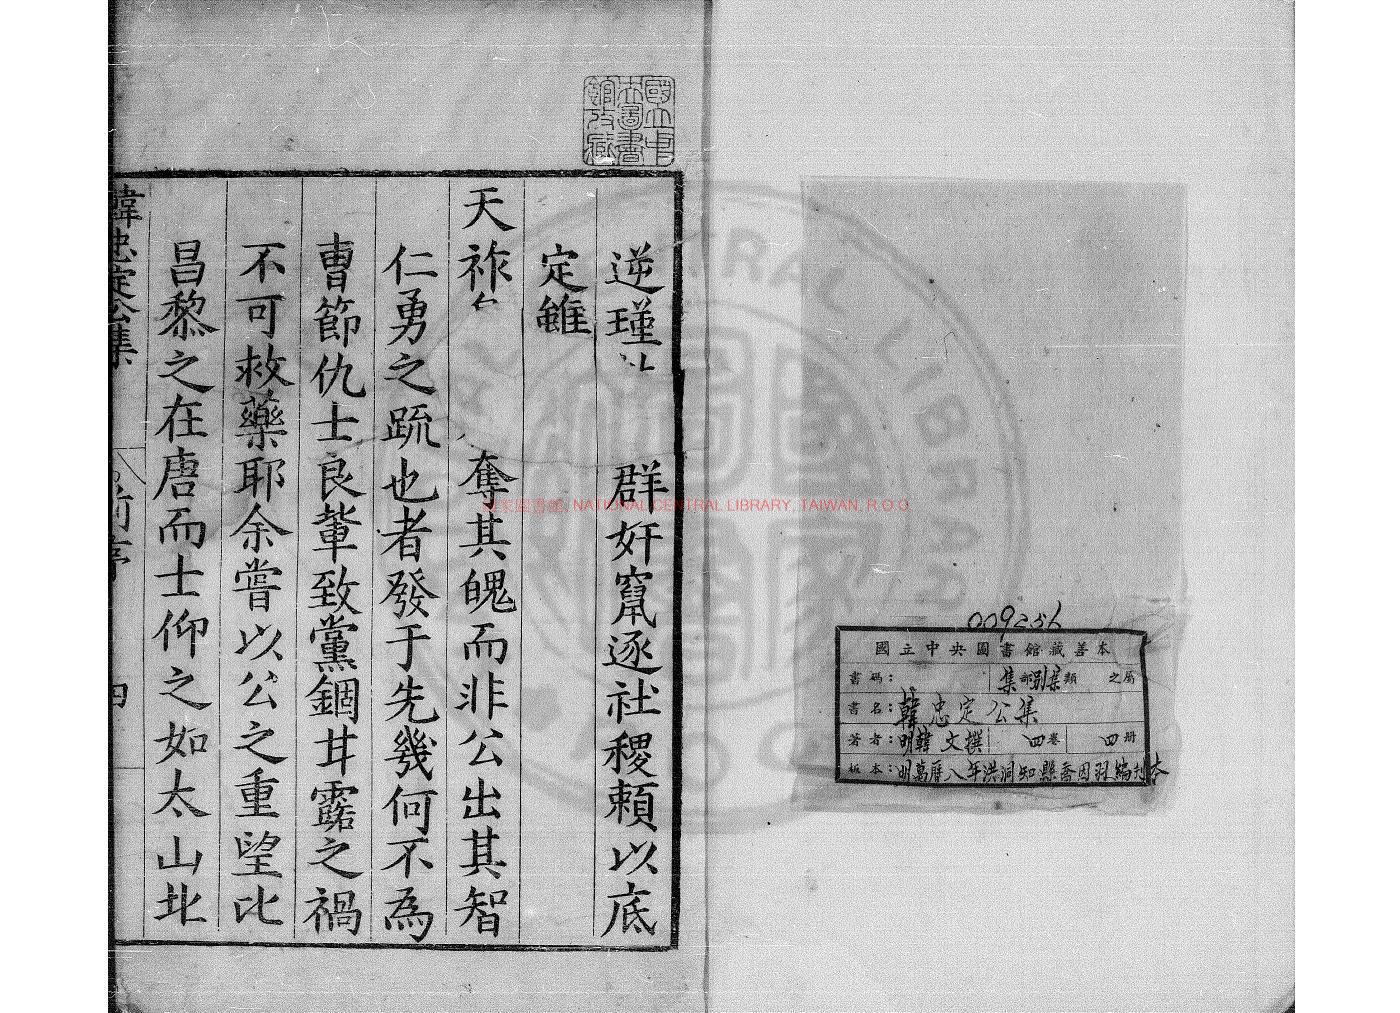 009256
國立中央圖書館藏善本
書碼： 集部別集類 之屬
書名：韓忠定公集
著者：明韓文撰 四卷 四册
板本：明萬曆八年洪洞知縣喬因羽編刊本
國立中央圖書館收藏
逆瑾 群奸竄逐社稷頼以底
定雖
天祚 奪其魄而非公出其智
仁勇之䟽也者發于先幾何不為
曺節仇士良軰致黨錮甘露之禍
不可救藥耶余嘗以公之重望比
昌黎之在唐而士仰之如太山北
韓忠定公集 前序 四
NATIONAL CENTRAL LIBRARY, TAIWAN, R.O.C